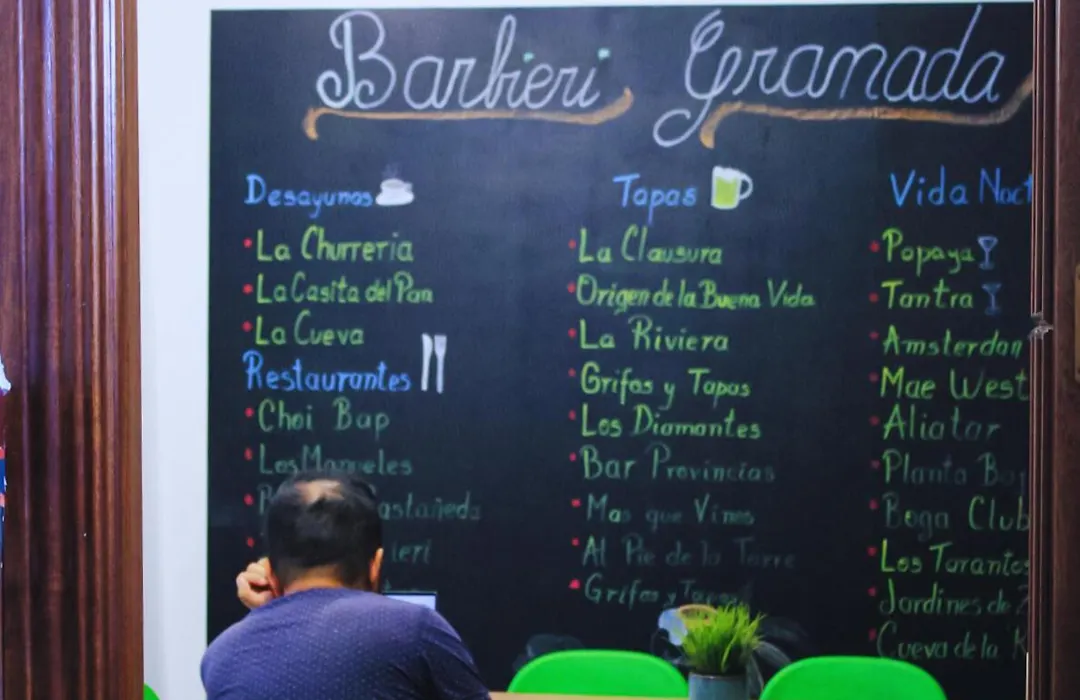 Barbieri Granada
Desayunos
La Churreria
La Casita del Pan
La Cueva
Restaurantes
Choi Bap
Los Manueles
astañeda
ieri
Tapas
La Clausura
Origen de la Buena Vida
La Riviera
Grifos y Tapas
Los Diamantes
Bar Provincias
Mas que Vinos
Al Pie de la Torre
Grifos y Tapas
Vida Noct
Papaya
Tantra
Amsterdan
Mae West
Aliatar
Planta Ba
Boga Club
Los Tarantos
Jardines de
Cueva de la